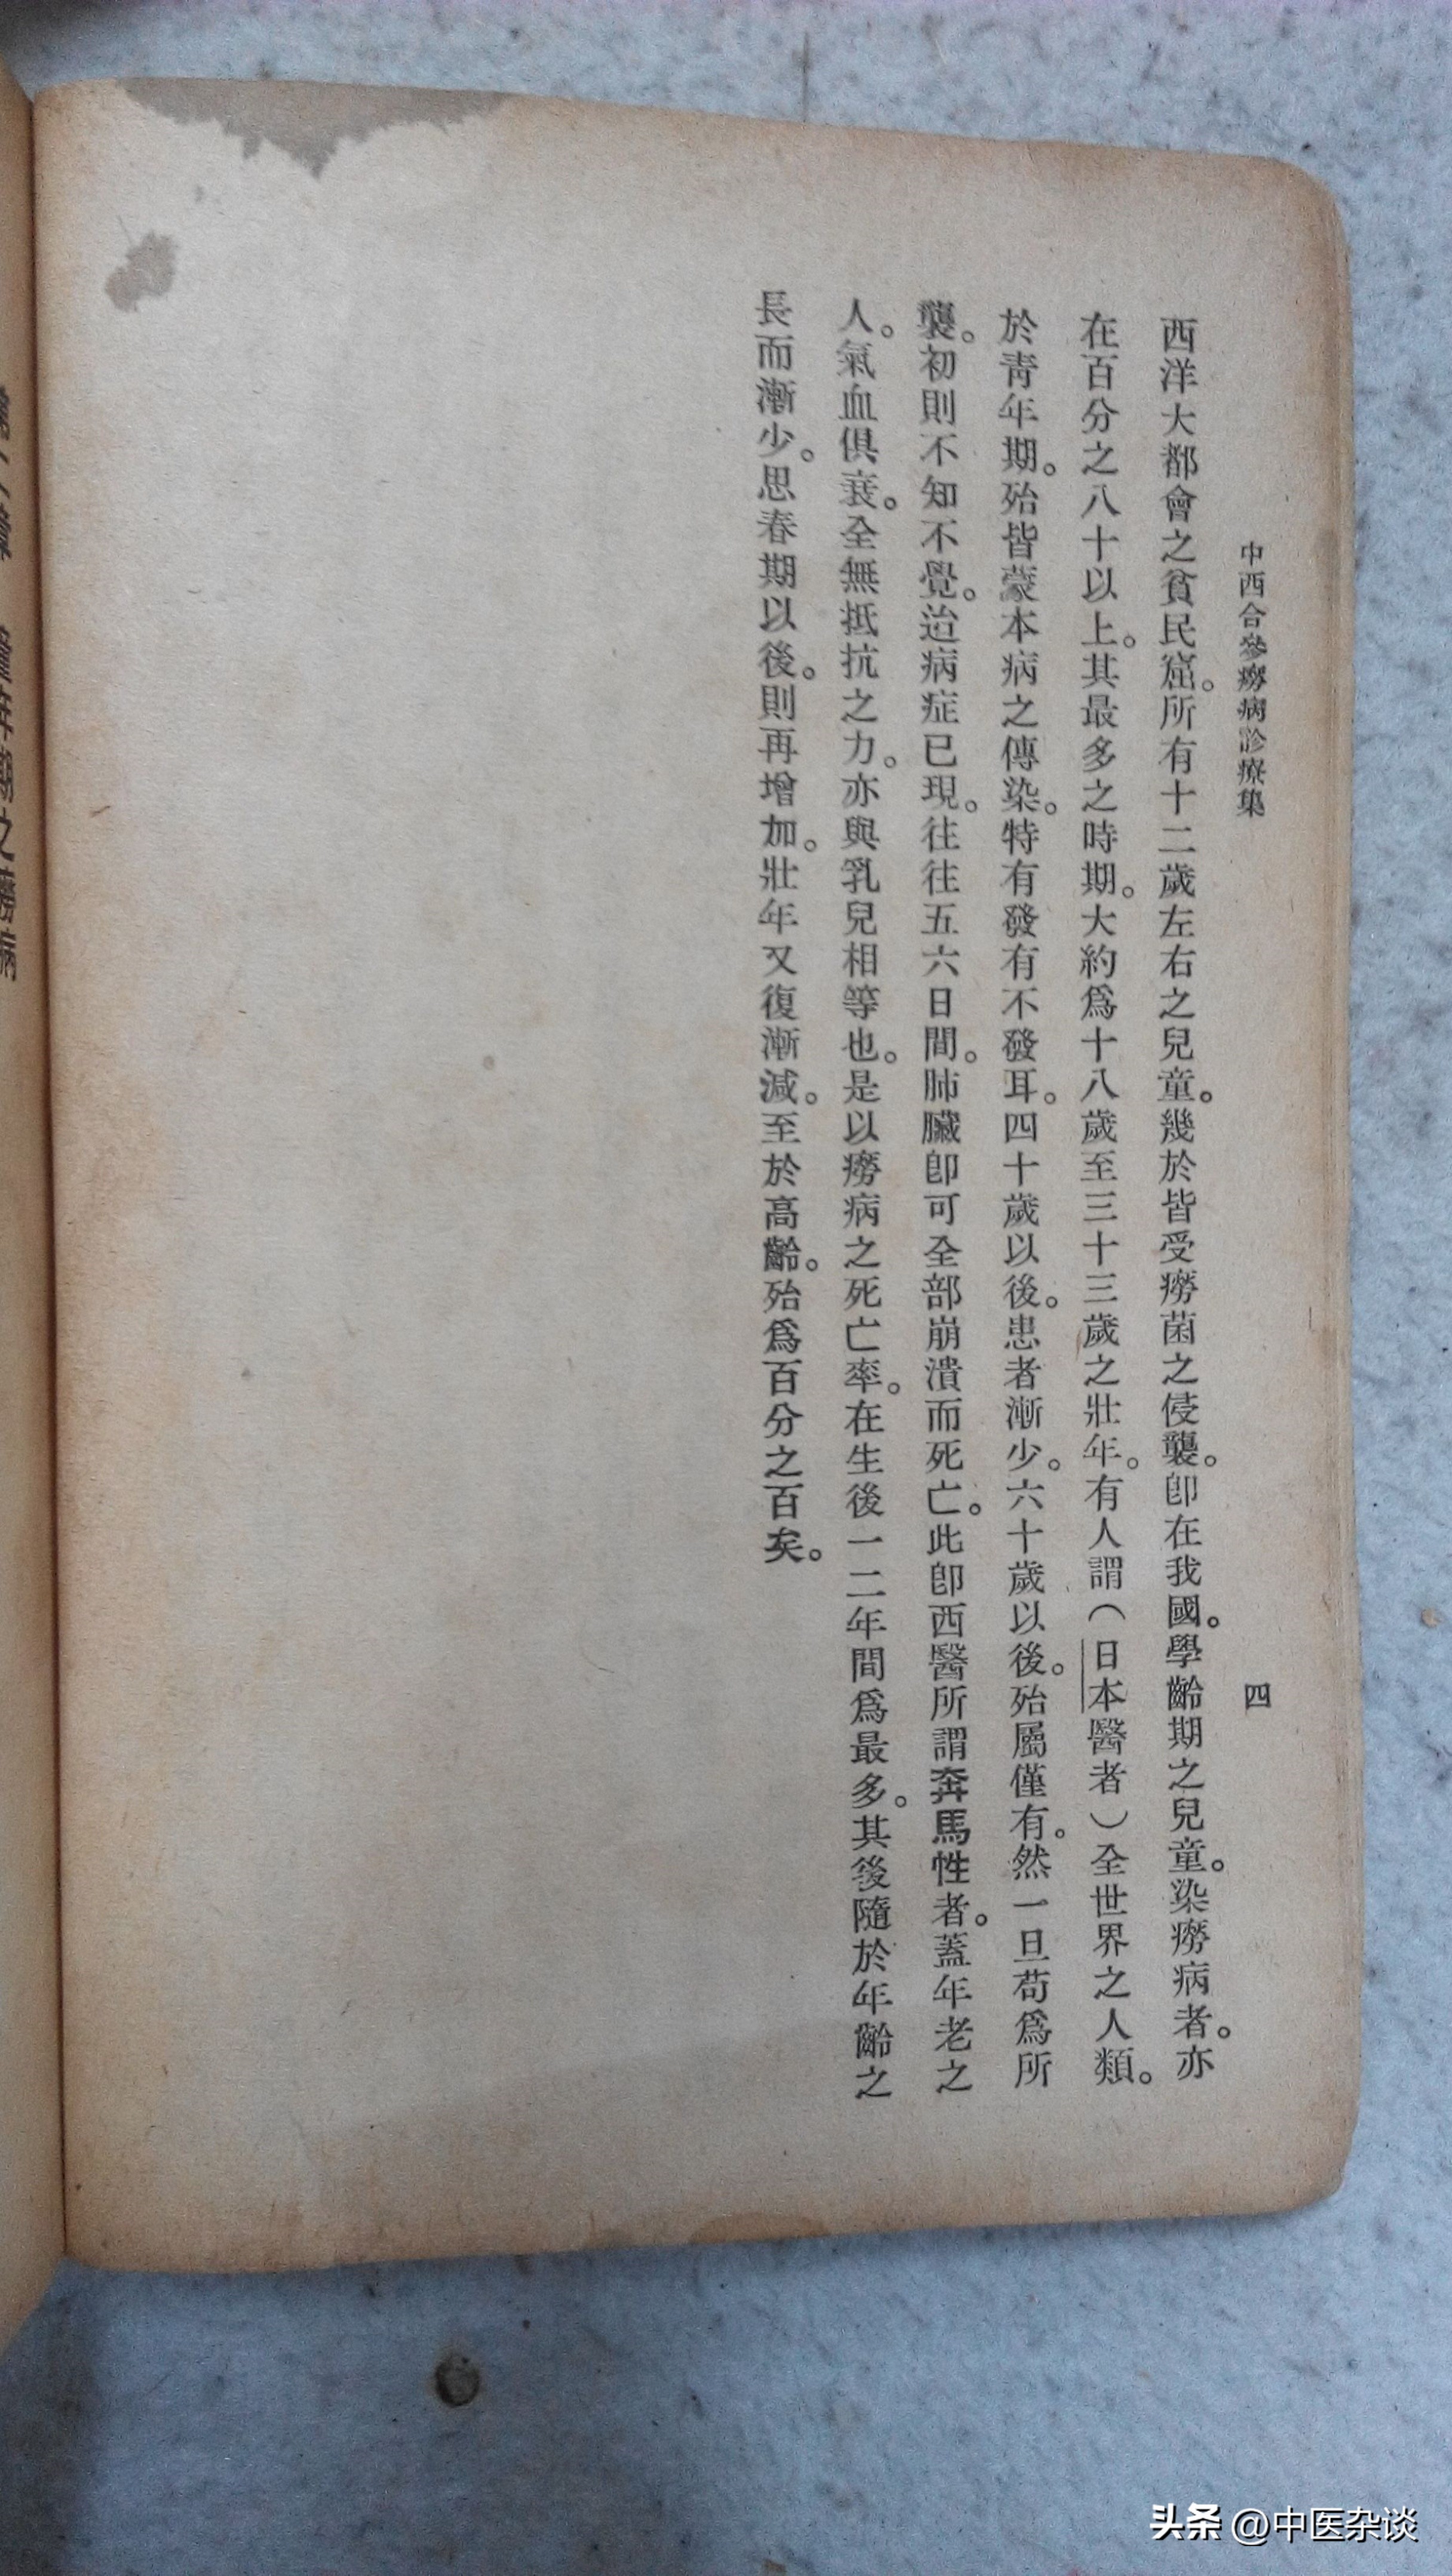 中西合參癆病診療集
四
西洋大都會之貧民窟。所有十二歲左右之兒童。幾於皆受癆菌之侵襲。卽在我國。學齡期之兒童。染癆病者。亦
在百分之八十以上。其最多之時期。大約爲十八歲至三十三歲之壯年。有人謂(日本醫者)全世界之人類。
於靑年期。殆皆蒙本病之傳染。特有發有不發耳。四十歲以後。患者漸少。六十歲以後。殆屬僅有。然一旦苟爲所
襲。初則不知不覺。迨病症已現。往往五六日間。肺臟卽可全部崩潰而死亡。此卽西醫所謂奔馬性者。蓋年老之
人。氣血俱衰。全無抵抗之力。亦與乳兒相等也。是以癆病之死亡率。在生後一二年間爲最多。其後隨於年齡之
長而漸少。思春期以後。則再增加。壯年又復漸減。至於高齡。殆爲百分之百矣。
期之癆病
头条 @中医杂谈